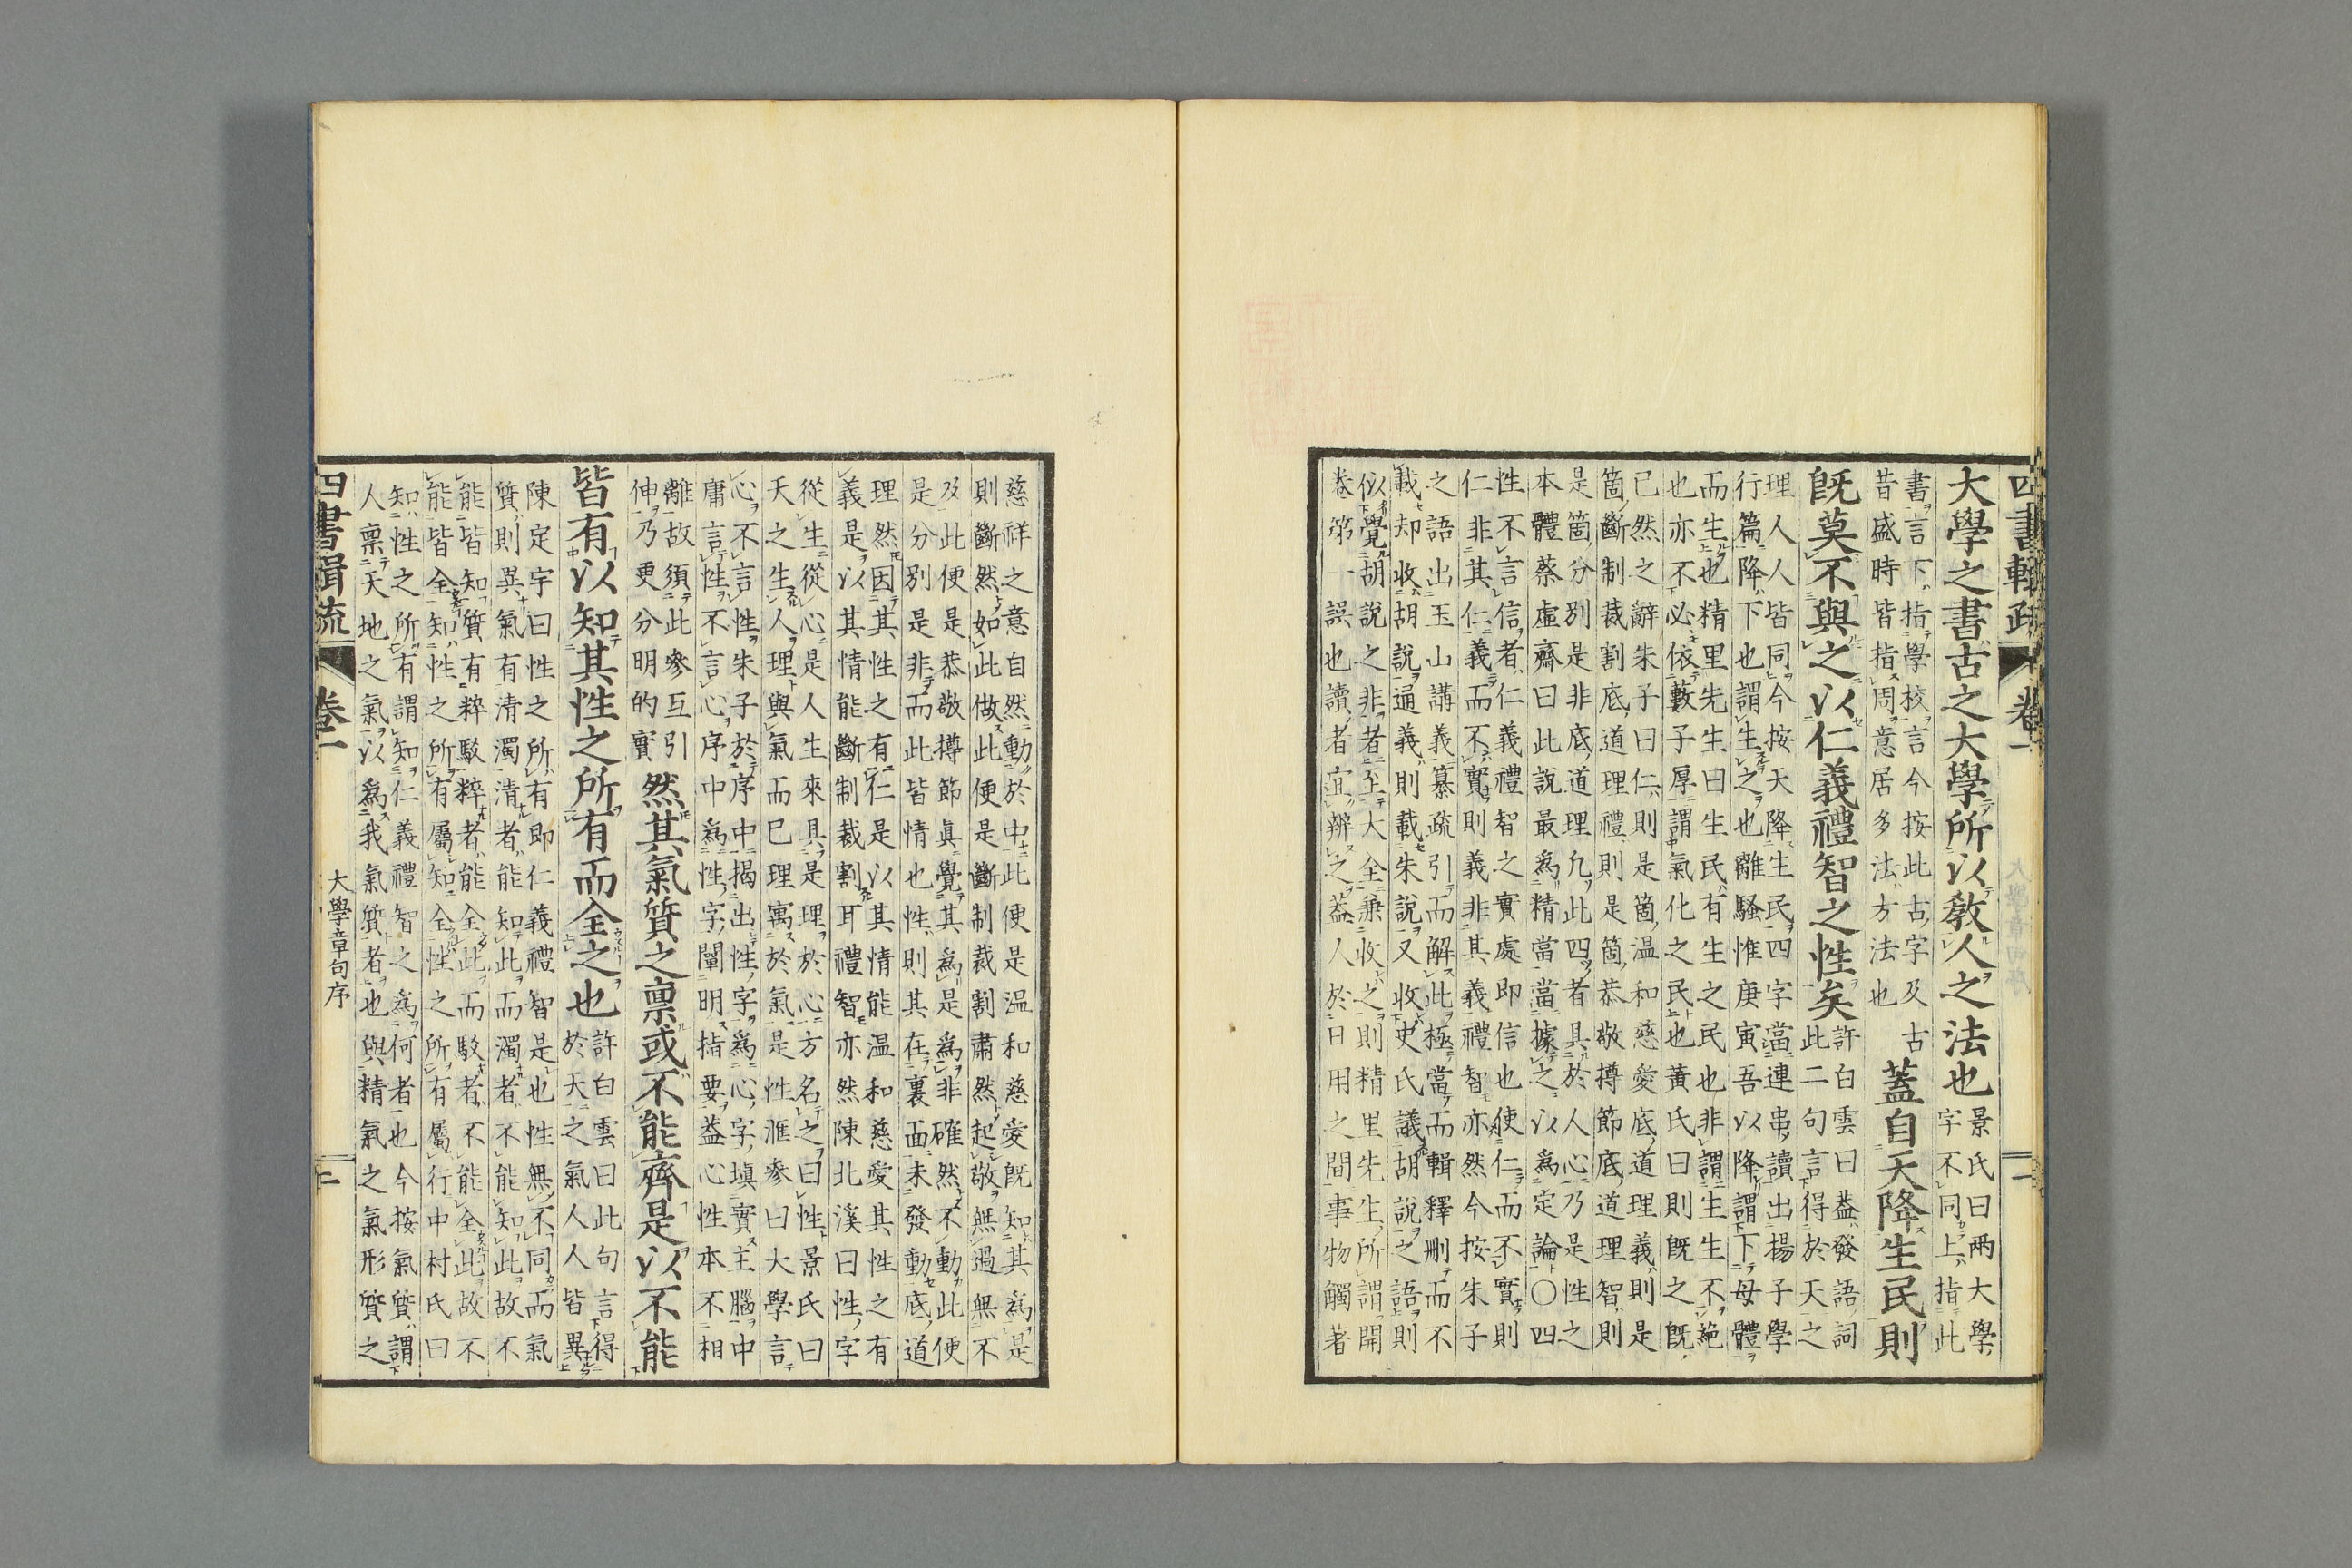 四書輯疏 卷一 二
大學之書古之大學所以教人之法也景氏曰兩大學
字不同上指此
書言下指學校言今按此古字及古
昔盛時皆指周意居多法方法也
蓋自天降生民則
既莫不與之以仁義禮智之性矣許白雲曰蓋發語詞
此二句言得於天之
理人人皆同今按天降生民四字當連串讀出揚子學
行篇降下也謂生之也離騷惟庚寅吾以降謂下母體
而生也精里先生曰生民有生之民也非謂生生不絶
也亦不必依藪子厚謂氣化之民也黃氏曰則既之既
已然之辭朱子曰仁則是箇溫和慈愛底道理義則是
箇斷制裁割底道理禮則是箇恭敬撙節底道理智則
是箇分別是非底道理凡此四者具於人心乃是性之
本體蔡虛齋曰此說最爲精當當據之以爲定論○四
性不言信者仁義禮智之實處即信也使仁而不實則
仁非其仁義而不實則義非其義禮智亦然今按朱子
之語出玉山講義纂疏引而解此極當而輯釋刪而不
載却收胡說通義則載朱說又收史氏議胡說之語則
似覺胡說之非者至大全兼收之則精里先生所謂開
卷第一誤也讀者宜辨之蓋人於日用之間事物觸著
慈祥之意自然動於中此便是溫和慈愛既知其爲是
則斷然如此做此便是斷制裁割肅然起敬無過無不
及此便是恭敬撙節眞覺其爲是爲非確然不動此便
是分別是非而此皆情也性則其在裏面未發動底道
理然因其性之有仁是以其情能溫和慈愛其性之有
義是以其情能斷制裁割耳禮智亦然陳北溪曰性字
從生從心是人生來具是理於心方名之曰性景氏曰
天之生人理與氣而已理寓於氣是性滙參曰大學言
心不言性朱子於序中揭出性字爲心字塡實主腦中
庸言性不言心序中爲性字闡明指要蓋心性本不相
離故須此參互引
伸乃更分明的實
然其氣質之稟或不能齊是以不能
皆有以知其性之所有而全之也許白雲曰此句言得
於天之氣人人皆異
陳定宇曰性之所有即仁義禮智是也性無不同而氣
質則異氣有清濁清者能知此而濁者不能知此故不
能皆知質有粹駁粹者能全此而駁者不能全此故不
能皆全知性之所有屬知全性之所有屬行中村氏曰
知性之所有謂知仁義禮智之爲何者也今按氣質謂
人稟天地之氣以爲我氣質者也與精氣之氣形質之
四書輯疏 卷一 大學章句序 二